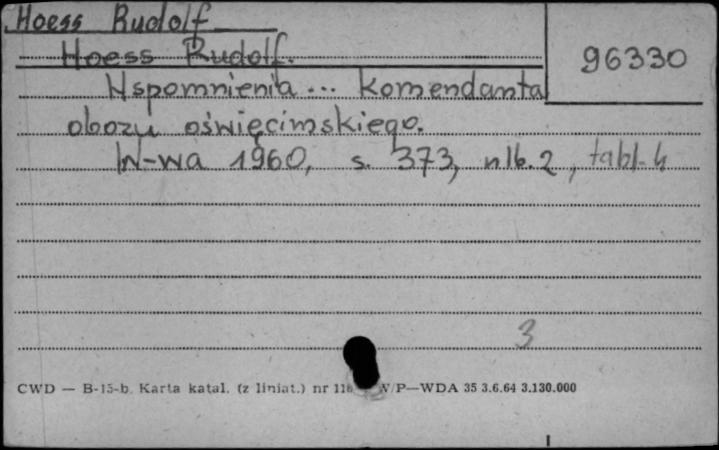 Hoess Rudolf
Hoess Rudolf.
96330
Wspomnienia ... komendanta
obozu oświęcimskiego.
W-wa 1960, s. 373, nlb. 2, tabl. 4
3
CWD — B-15-b. Karta katal. (z liniat.) nr 116 W/P—WDA 35 3.6.64 3.130.000